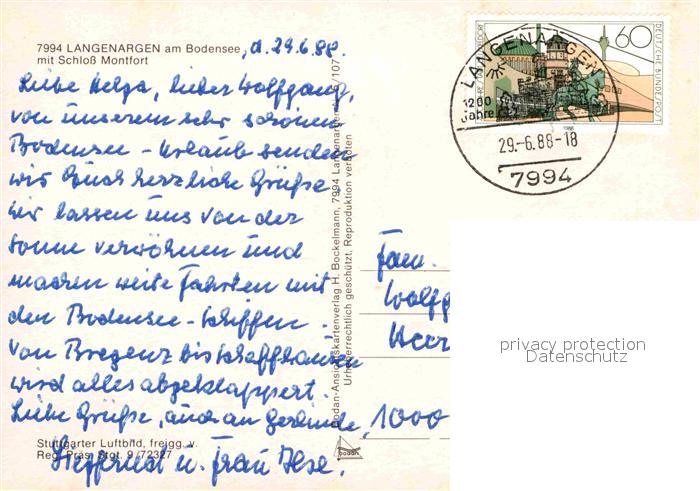 7994 LANGENARGEN am Bodensee, d. 29.6.88.
mit Schloß Montfort
Liebe Helga, lieber Wolfgang,
von unserem sehr schönen
Bodensee-Urlaub senden
wir Euch herzliche Grüße.
Wir lassen uns von der
Sonne verwöhnen und
machen weite Fahrten mit
den Bodensee-Schiffen.
Von Bregenz bis Schaffhausen
wird alles abgeklappert.
Liebe Grüße, auch an Gerlinde,
Siegfried u. Frau Ilse.
Stuttgarter Luftbild, freigg. v.
Reg. Präs. Stgt. 9/72327
Bodan-Ansichtskartenverlag H. Bockelmann, 7994 Langenargen
Urheberrechtlich geschützt. Reproduktion verboten
bodan
60
DEUTSCHE BUNDESPOST
LANGENARGEN
1200
Jahre
29.-6.88-18
7994
Fam.
Wolfg
Herr
1000
privacy protection
Datenschutz